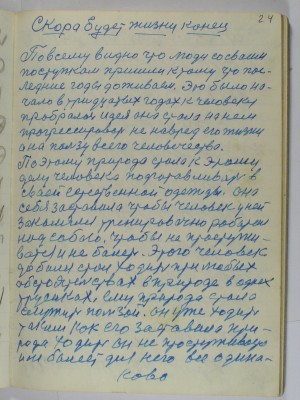 24
Скора будет жизни конец
По всему видно что люди со своим
поступкам пришли к тому что пос-
ледние годы доживаем. Это было на-
чало в тридцатых годах к человеку
пробралась идея она стала на нем
прогрессировать не навред его жизни
а на пользу всего человечества.
Поэтому природа стала к этому
делу человека подготавливать в
своей естественной одежды. Она
себя заставила чтобы человек у ней
закалялся тренировочно работал
над собою, чтобы не простужи-
ваться и не болеть. Этого человек
добился стал ходить при любых
обстоятельствах в природе в одних
трусиках, ему природа стала
служить пользой. он уже ходит
таким как его заставила при-
рода ходить он не простуживается
и не болеет для него все одина-
ково